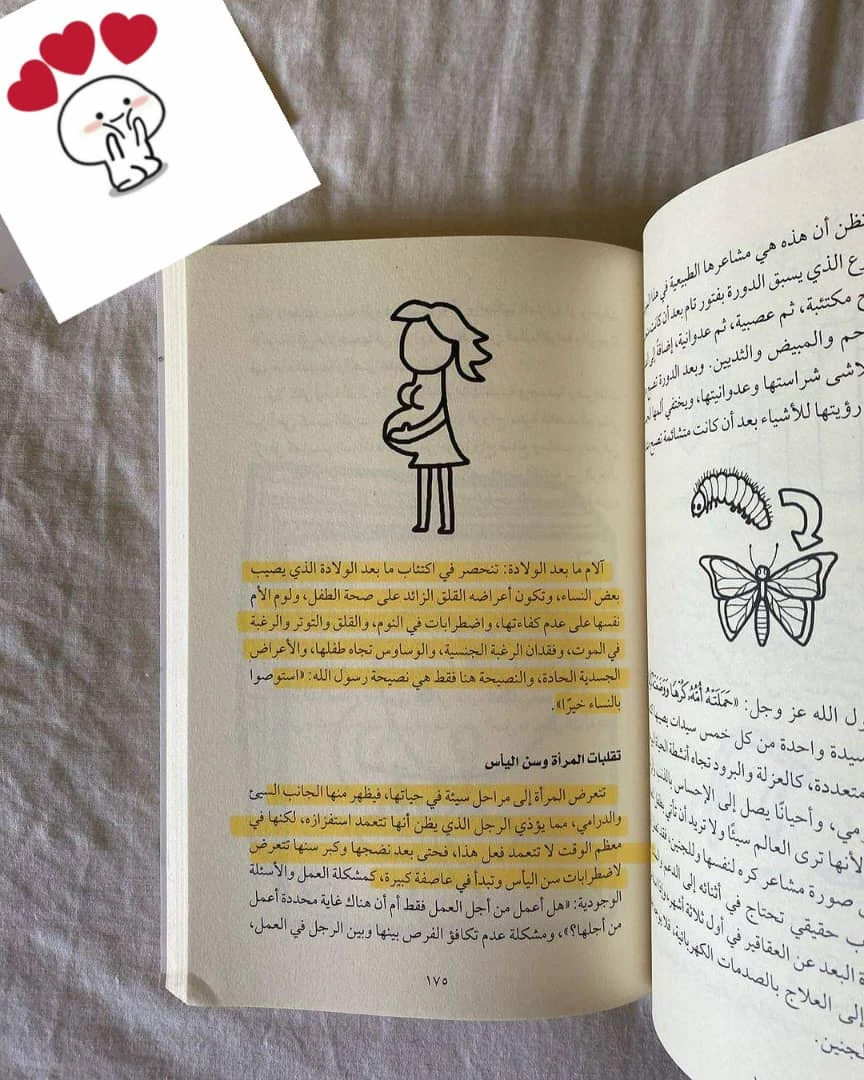 تظن أن هذه هي مشاعرها الطبيعية في هذا
ع الذي يسبق الدورة بفتور تام بعد أن كانت
مكتئبة، ثم عصبية، ثم عدوانية، إضافة إلى
حم والمبيض والثديين. وبعد الدورة تصبح
لاشى شراستها وعدوانيتها، ويختفي ألمها
رؤيتها للأشياء بعد أن كانت متشائمة تصبح
ل الله عز وجل: «حَمَلَتْهُ أُمُّهُ كُرْهًا وَوَضَعَتْهُ
سيدة واحدة من كل خمس سيدات يصيبها
متعددة، كالعزلة والبرود تجاه أنشطة الحياة
مي، وأحيانًا يصل إلى الإحساس بالذنب
لأنها ترى العالم سيئًا ولا تريد أن تأتي بطفل
صورة مشاعر كره لنفسها وللجنين، فقد
ب حقيقي تحتاج في أثنائه إلى الدعم
ة البعد عن العقاقير في أول ثلاثة أشهر
إلى العلاج بالصدمات الكهربائية، فلا
لجنين.
آلام ما بعد الولادة: تنحصر في اكتئاب ما بعد الولادة الذي يصيب
بعض النساء، وتكون أعراضه القلق الزائد على صحة الطفل، ولوم الأم
نفسها على عدم كفاءتها، واضطرابات في النوم، والقلق والتوتر والرغبة
في الموت، وفقدان الرغبة الجنسية، والوساوس تجاه طفلها، والأعراض
الجسدية الحادة، والنصيحة هنا فقط هي نصيحة رسول الله: «استوصوا
بالنساء خيرًا».
تقلبات المرأة وسن اليأس
تتعرض المرأة إلى مراحل سيئة في حياتها، فيظهر منها الجانب السيئ
والدرامي، مما يؤذي الرجل الذي يظن أنها تتعمد استفزازه، لكنها في
معظم الوقت لا تتعمد فعل هذا، فحتى بعد نضجها وكبر سنها تتعرض
لاضطرابات سن اليأس وتبدأ في عاصفة كبيرة، كمشكلة العمل والأسئلة
الوجودية: «هل أعمل من أجل العمل فقط أم أن هناك غاية محددة أعمل
من أجلها؟»، ومشكلة عدم تكافؤ الفرص بينها وبين الرجل في العمل،
١٧٥